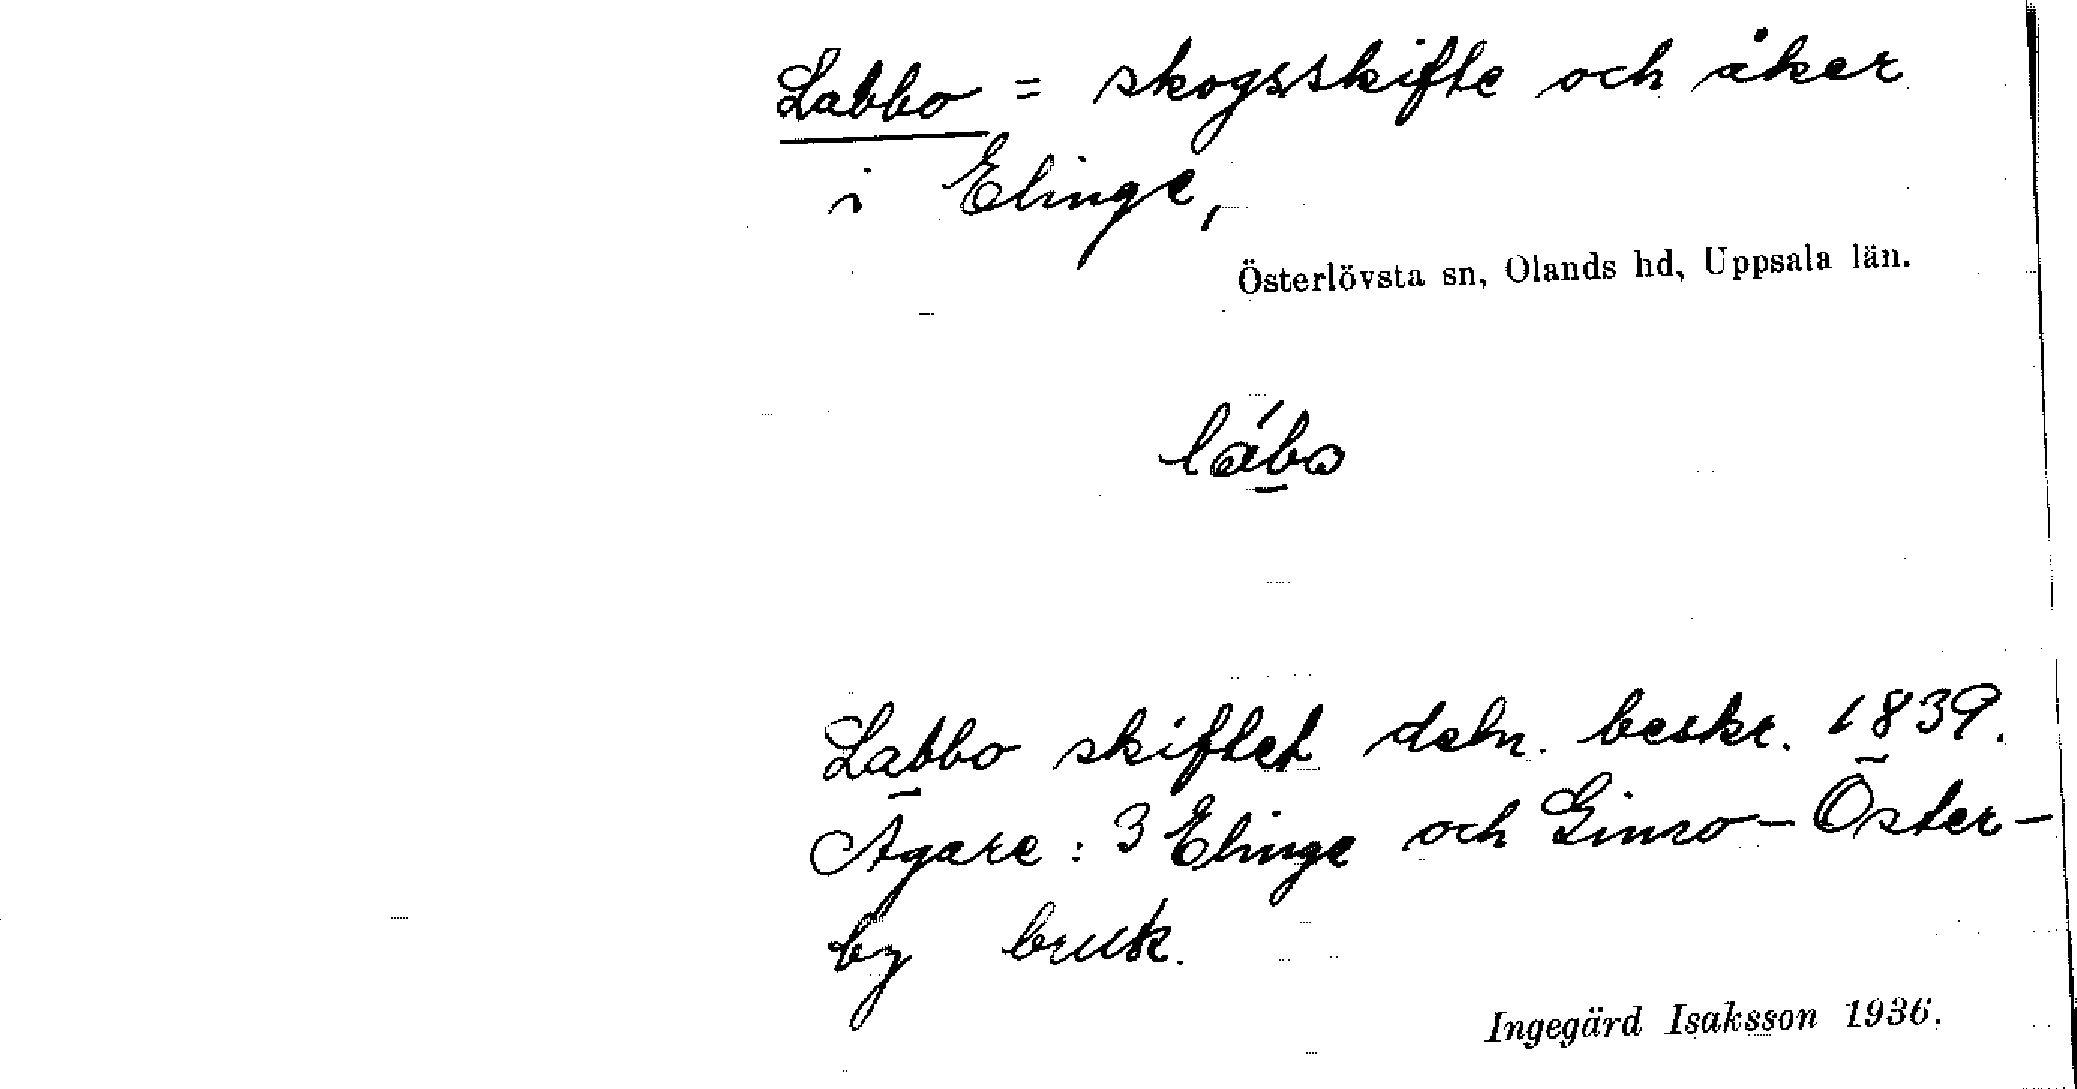 Labbo = skogsskifte och åker
i Elinge,
Österlövsta sn, Olands hd, Uppsala län.
lábo
Labbo skiftet deln. beskr. 1839.
Ägare: 3 Elinge och Gimo-Öster-
by bruk.
Ingegärd Isaksson 1936.